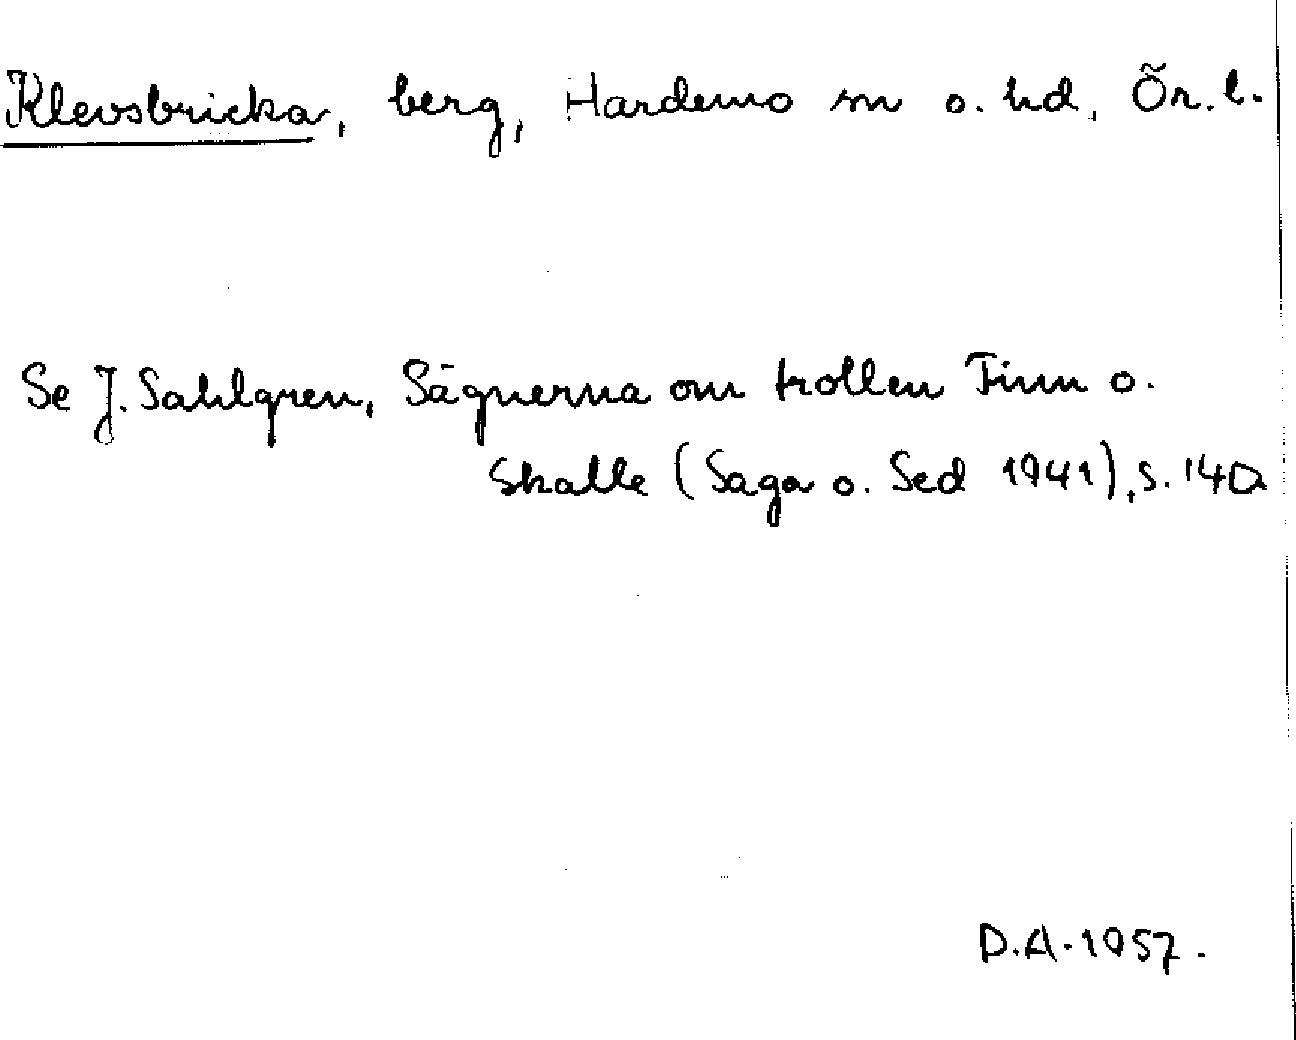 Klevsbricka, berg, Hardemo sn o. hd, Ör. l.
Se J. Sahlgren, Sägnerna om trollen Finn o.
Skalle (Saga o. Sed 1941), s. 140
D.A. 1957.